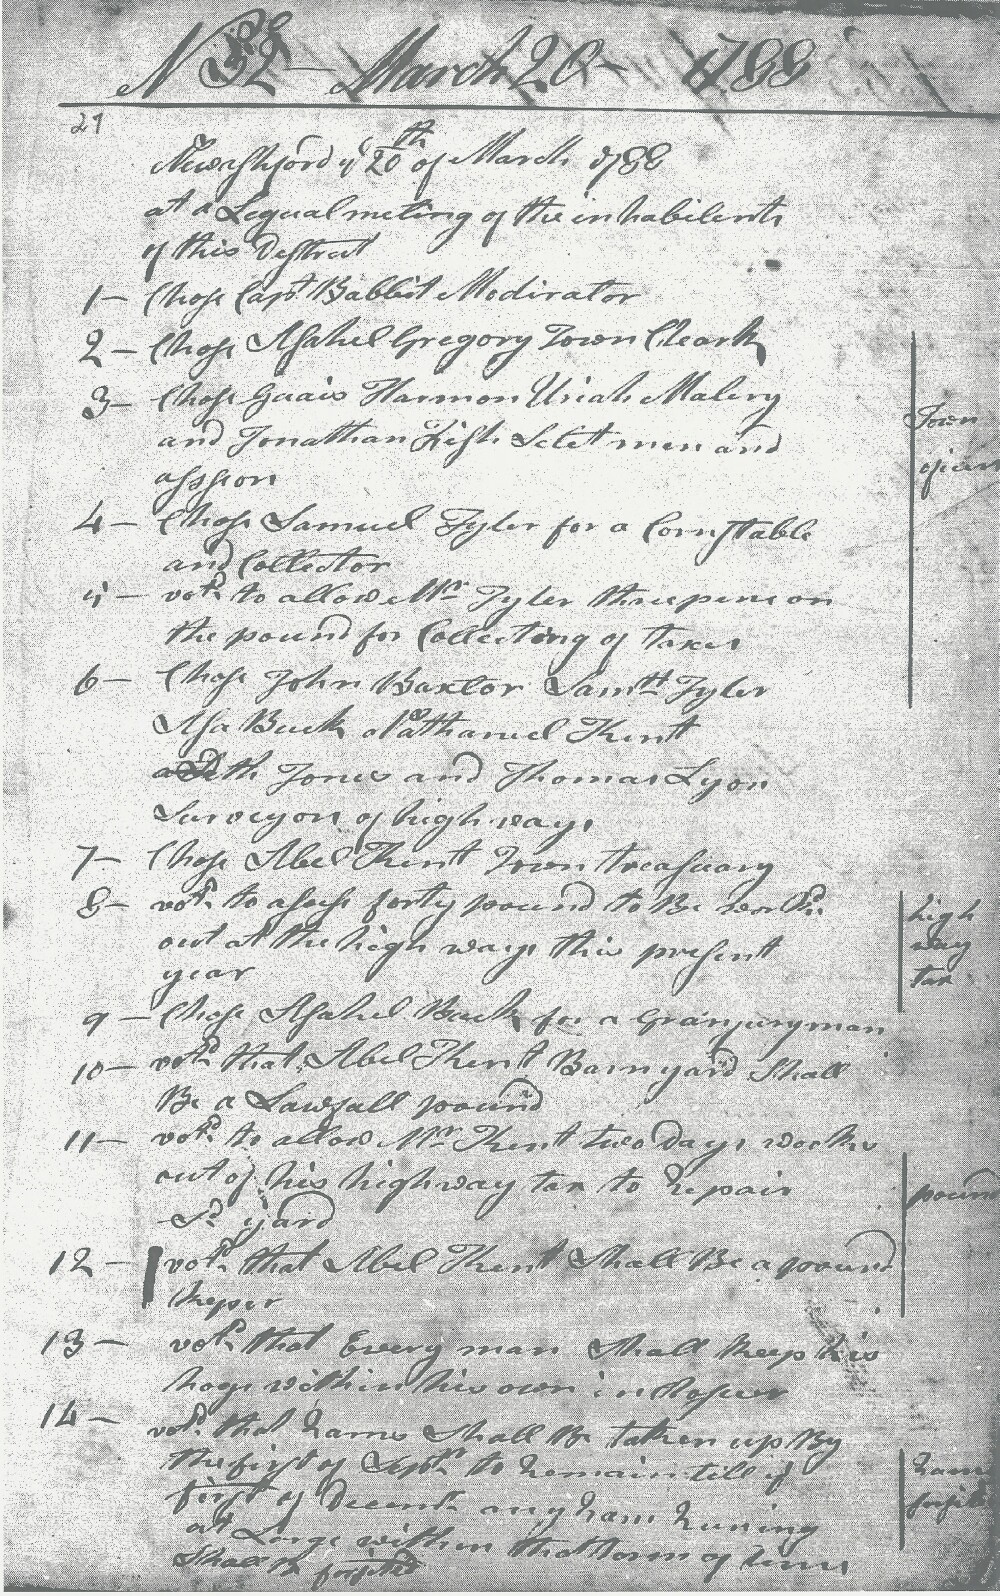 N 32 — March 20 — 1788
Newashford ye 20th of March 1788
at a Legual meting of the inhabilents
of this Destrat
1— Chose Capt Babbit Modirator
2— Chose Asahel Gregory Town Cleark
3— Chose Gaais Harmon Uriah Malery
and Jonathan Fish Selet men and
assson
4— Chose Samuel Tyler for a Cornstable
and Collector
5— votd to allow Mr Tyler threepene on
the pound for Collecting of taxes
6— Chose John Baxtor Samll Tyler
Asa Buck Nathaniel Kent
Jones and Thomas Lyon
Surveyors of high ways
7— Chose Abel Kent Town treasuary
8— votd to asess forty pound to Be workd
out at the high ways this present
year
9— Chose Asahel Buck for a Granjuryman
10— votd that Abel Kent Barn yard Shall
Be a Lawfall pound
11— votd to allow Mr Kent two days works
out of his highway tax to Repair
Sd yard
12— votd that Abel Kent Shall Be a pound
Keper
13— votd that Every man Shall Keep his
hogs within his own
14— votd that Rams Shall Be taken up By
the first of Septr to Remain till ye
first of Decemr any Ram Runing
at Large within that term of time
Shall Be forfitd
Town
high
way
tax
pound
Rams